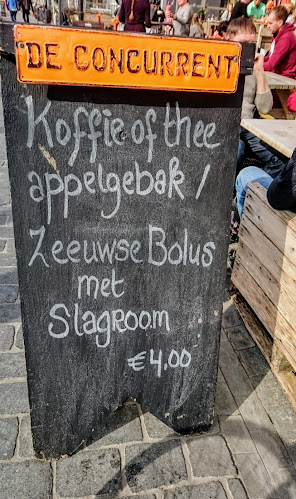 DE CONCURRENT
Koffie of thee
appelgebak /
Zeeuwse Bolus
met
Slagroom
€4,00